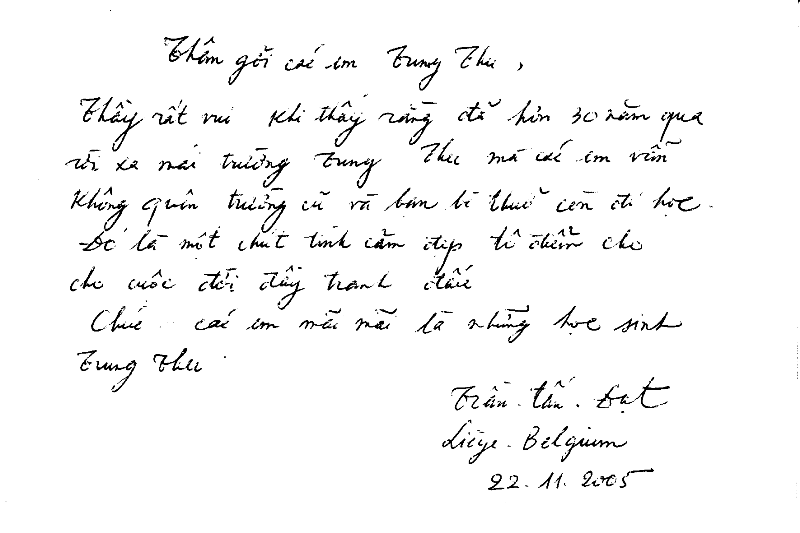 Thân gởi các em Trung Thu,
Thầy rất vui khi thấy rằng đã hơn 30 năm qua
rời xa mái trường Trung Thu mà các em vẫn
không quên trường cũ và bạn bè thuở còn đi học.
Đó là một chút tình cảm đẹp tô điểm cho
cho cuộc đời đầy tranh đấu
Chúc các em mãi mãi là những học sinh
Trung Thu.
Trần. tấn. Đạt
Liège. Belgium
22. 11. 2005